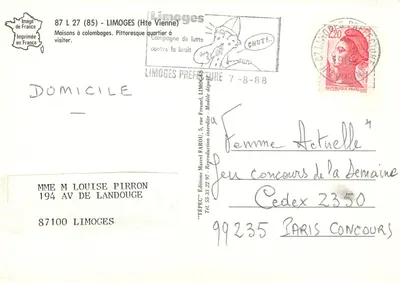 Image
de France
Imprimée
en France
87 L 27 (85) - LIMOGES (Hte Vienne)
Maisons à colombages. Pittoresque quartier à
visiter.
Limoges
Campagne de lutte
contre le bruit
CHUT!..
LIMOGES PREFECTURE 7-8-88
2,20
DOMICILE
"TÉPEC" Editions Marcel FAROU, 5, rue Fresnel, LIMOGES
Tél. 55 33 22 97 - Reproduction interdite - Modèle déposé
MME M LOUISE PIRRON
194 AV DE LANDOUGE
87100 LIMOGES
"Femme Actuelle"
Jeu concours de la Semaine
Cedex 2350
99235 PARIS CONCOURS